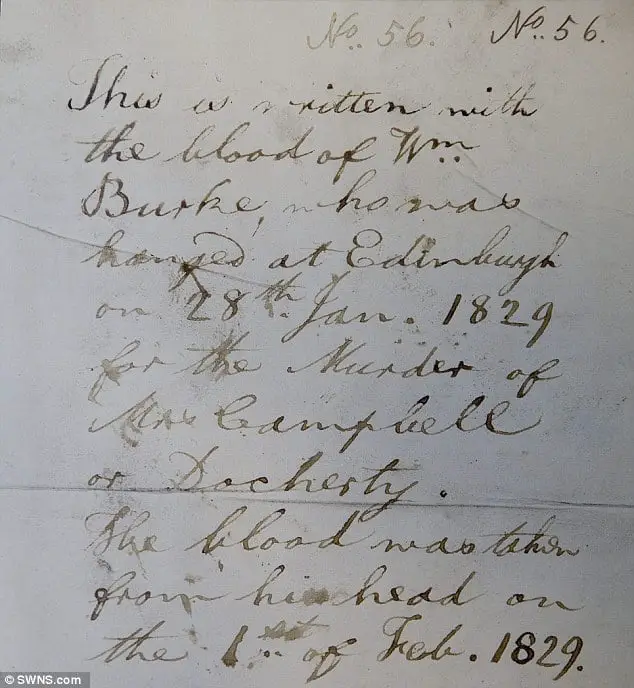 No. 56. No. 56.
This is written with
the blood of Wm.
Burke, who was
hanged at Edinburgh
on 28th Jan. 1829
for the Murder of
Mrs Campbell
or Docherty.
The blood was taken
from his head on
the 1st of Feb. 1829.
© SWNS.com